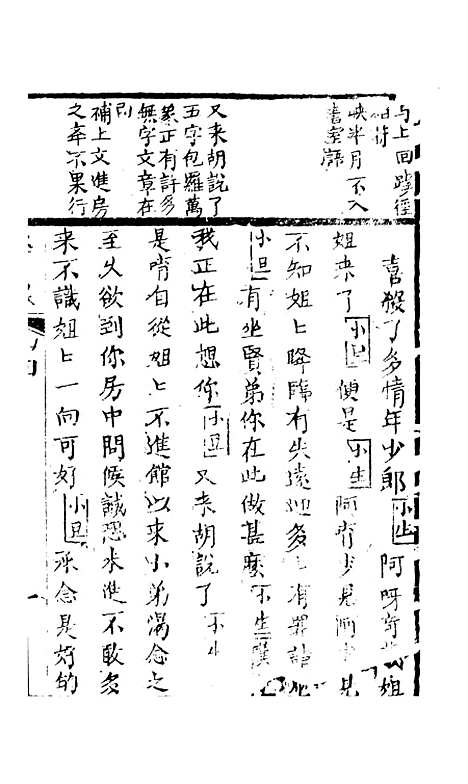 与上回蹊徑
映半月不入
書室

又来胡說了
五字包羅萬
象正有許多
無字文章在
則
補上文進房
之奔不果行

喜殺了多情年少郎 小生 阿呀 姐
姐来了 小旦 便是 小生 阿
不知姐上降臨有失遠迎多 有罪
小旦 有坐賢弟你在此做甚麽 小生
我正在此想你 小旦 又来胡說了 小
是啃自從姐上不進館以来小弟渴念之
至久欲到你房中問候誠恐 進不敢多
来不識姐上一向可好 小旦 承念是好的